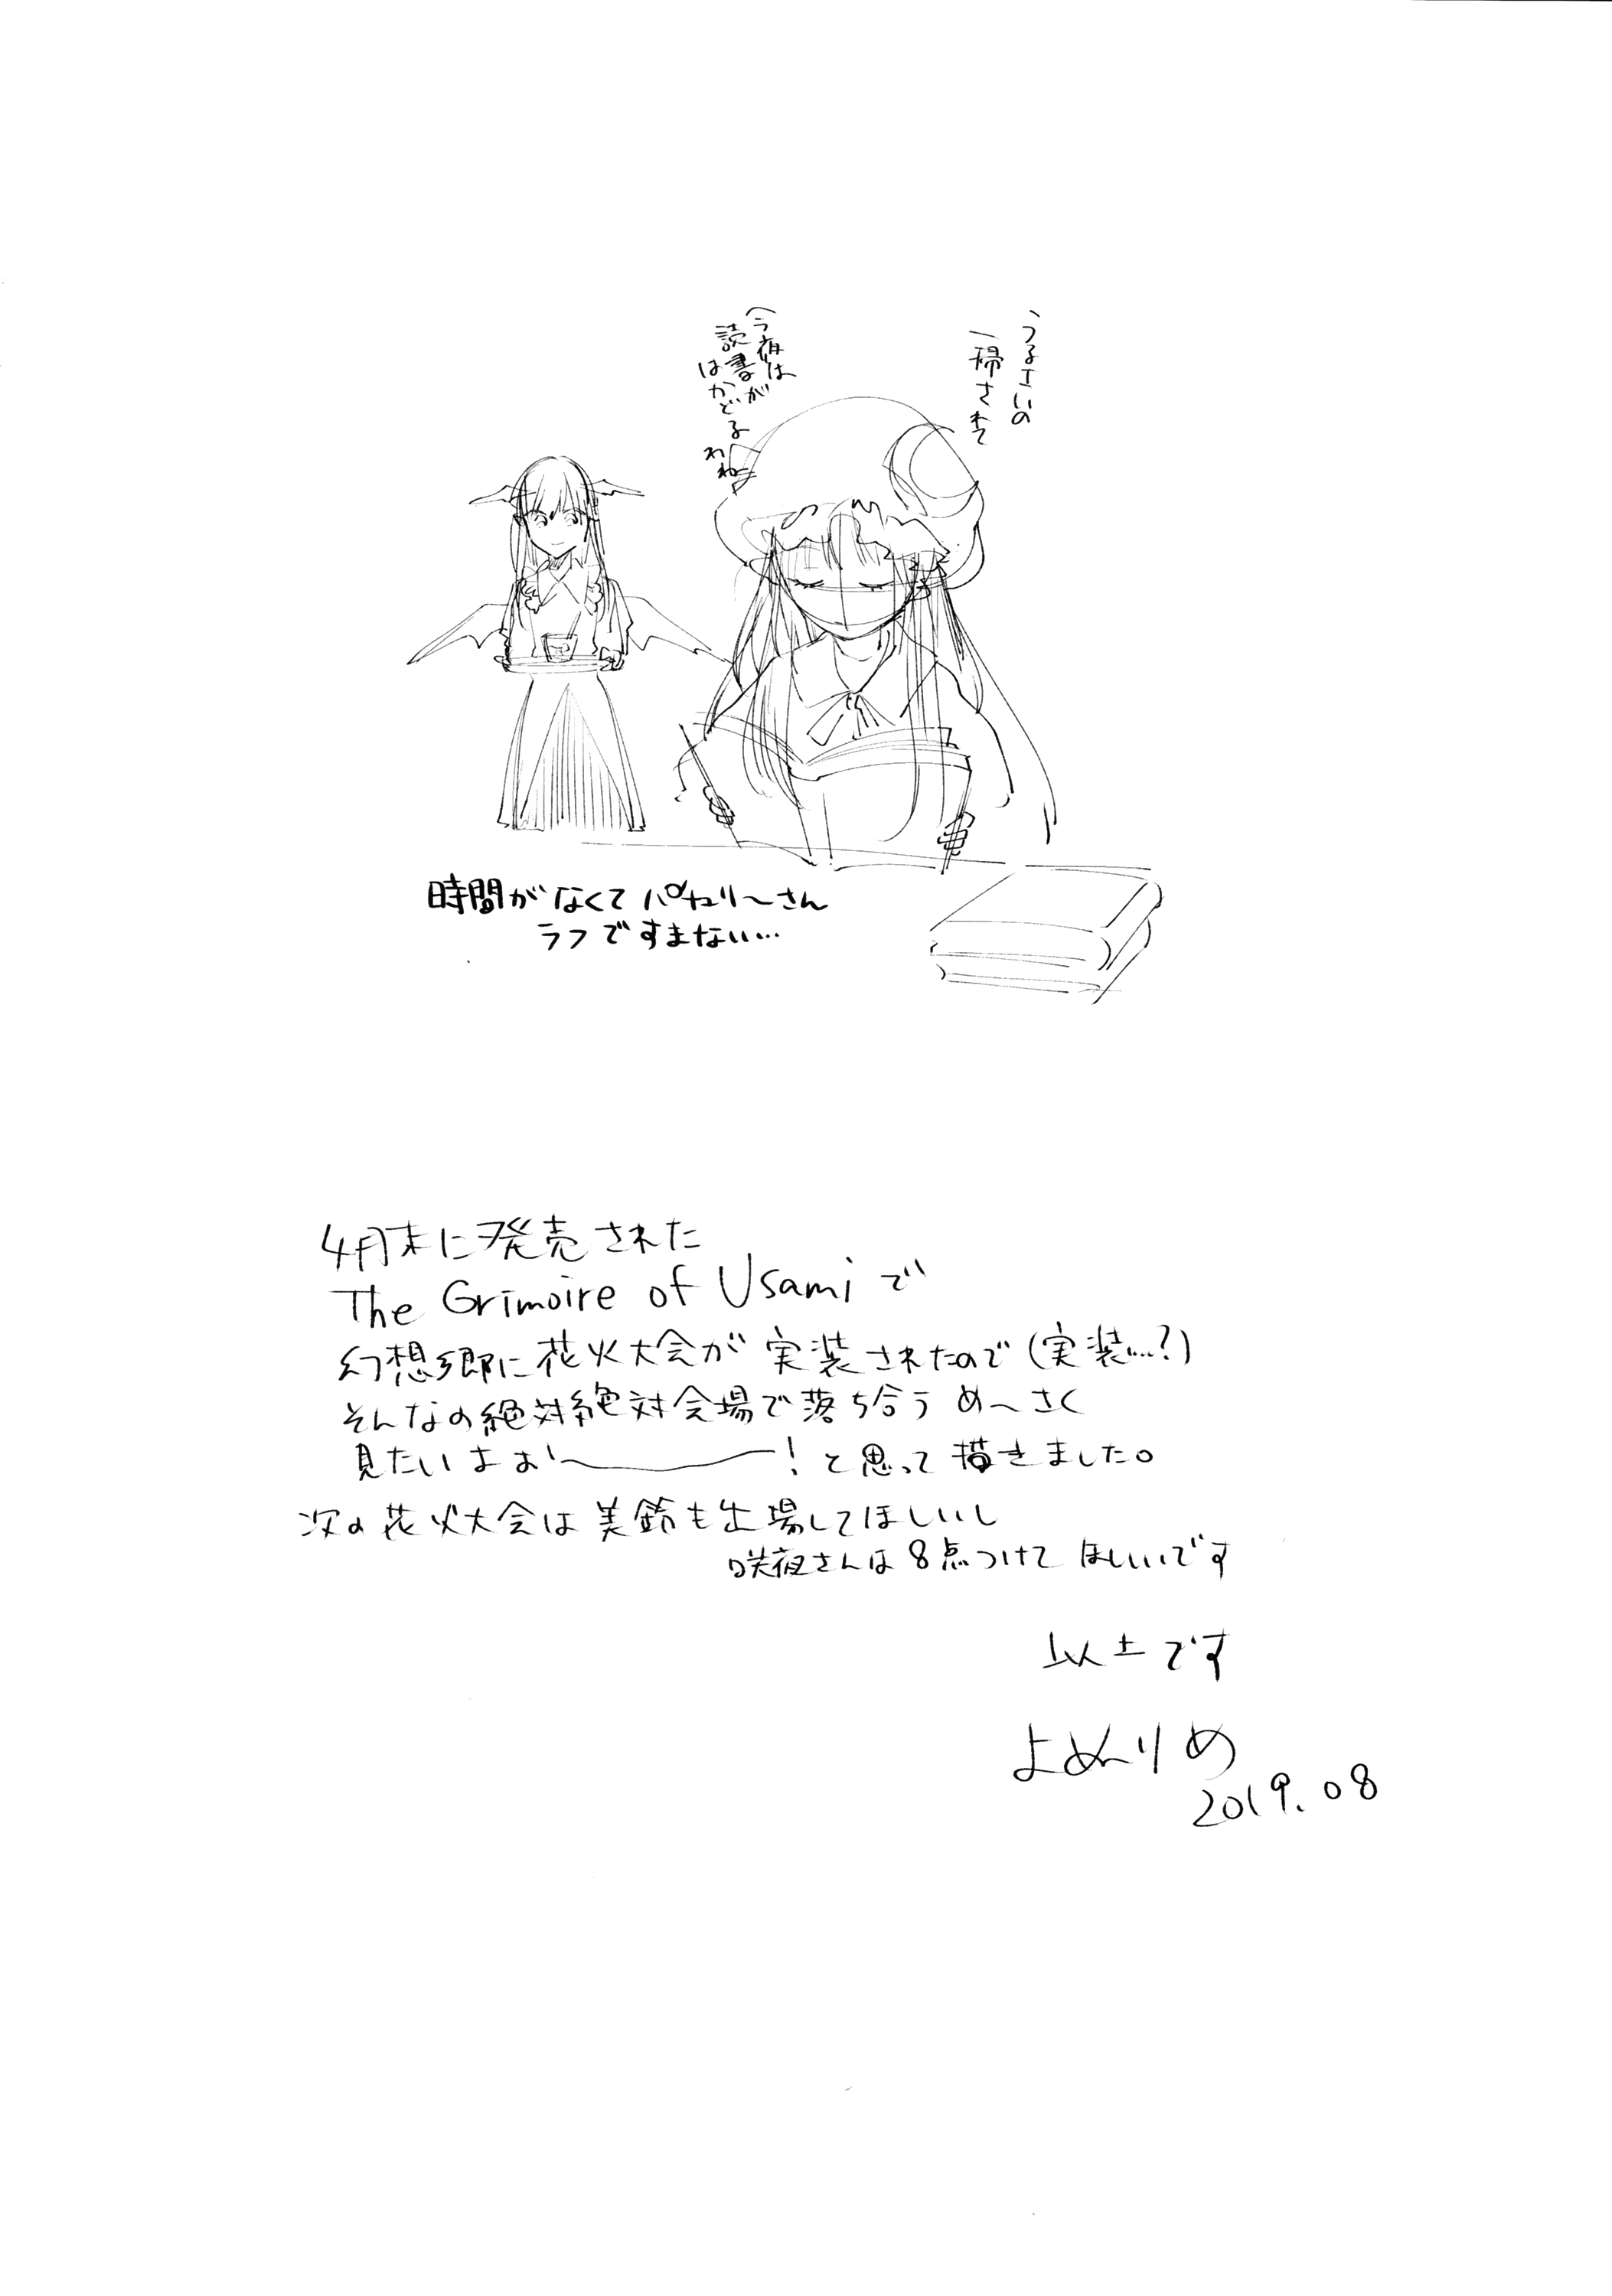 うるさいの
一掃されて
今夜は
読書が
はかどる
わね
時間がなくてパチュリーさん
ラフですまない…
4月末に発売された
The Grimoire of Usamiで
幻想郷に花火大会が実装されたので(実装…?)
そんなの絶対絶対会場で落ち合うめーさく
見たいよぉ〜!と思って描きました。
次の花火大会は美鈴も出場してほしいし
咲夜さんは8点つけてほしいです
以上です
よぬりめ
2019.08